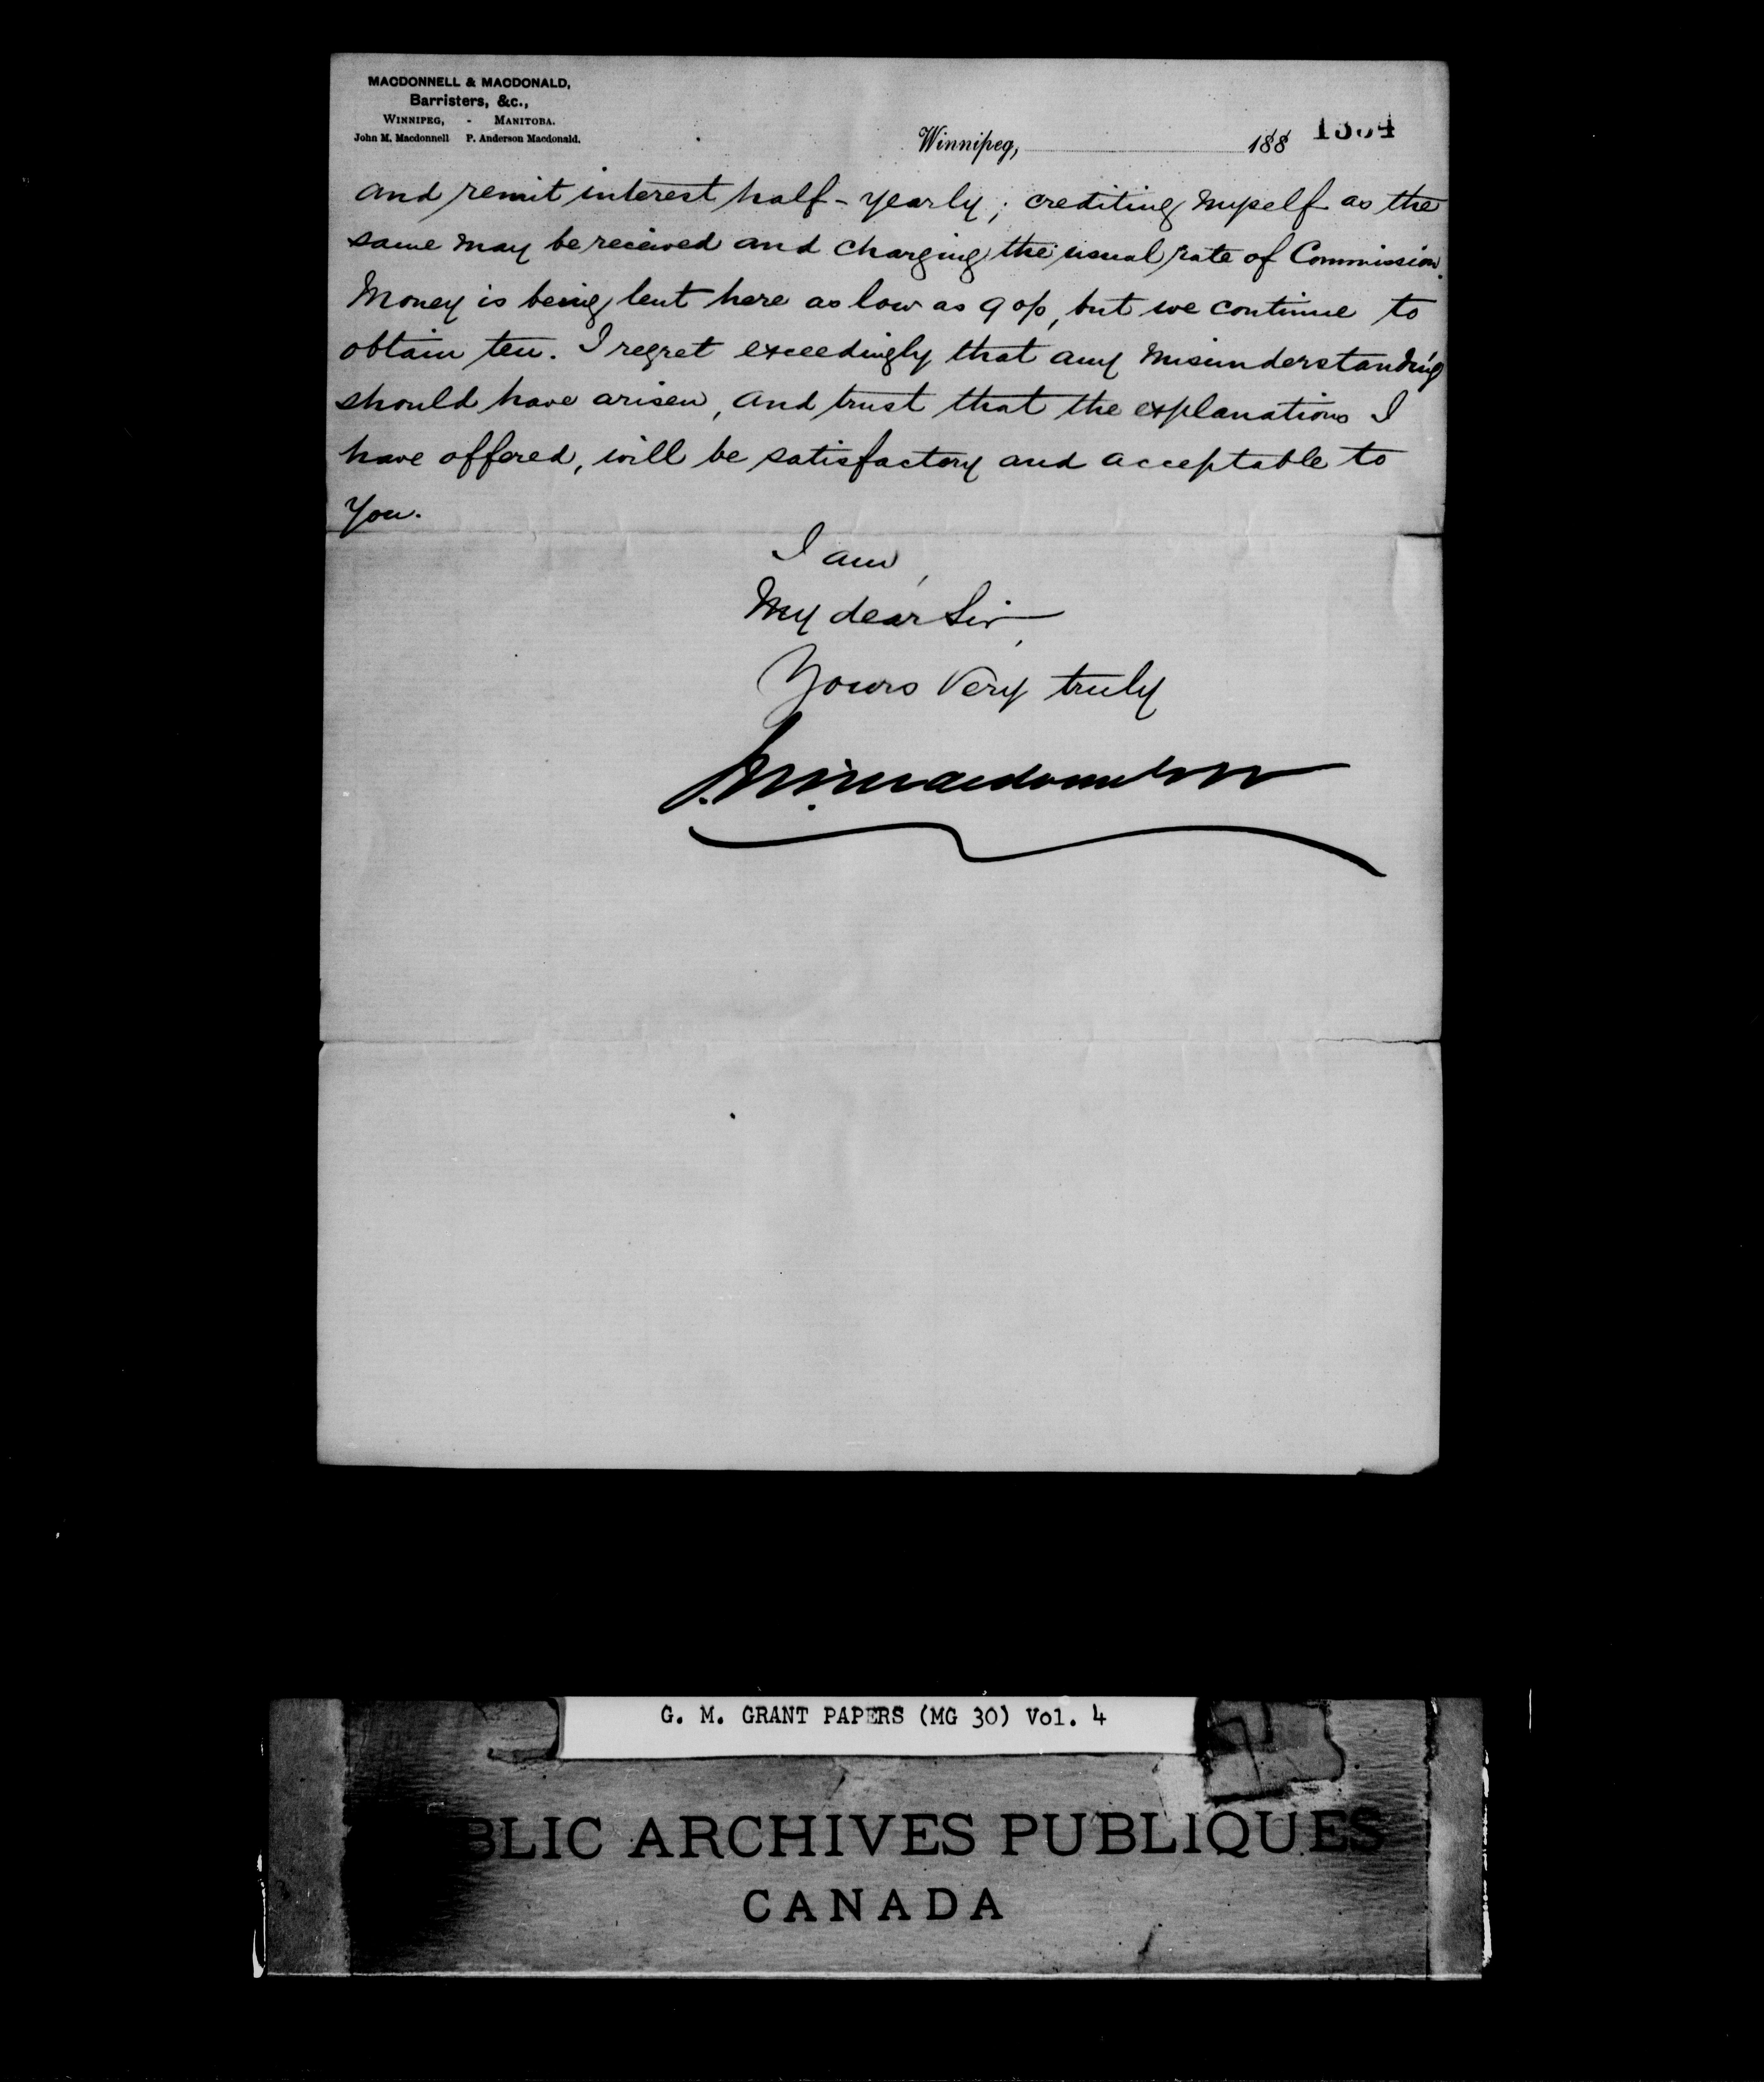 MACDONNELL & MACDONALD,
Barristers, &c.,
WINNIPEG, - MANITOBA.
John M. Macdonnell P. Anderson Macdonald.
Winnipeg, 188
and remit interest half-yearly; crediting myself as the
same may be received and charging the usual rate of Commission.
Money is being lent here as low as 9 o/o, but we continue to
obtain ten. I regret exceedingly that any misunderstanding
should have arisen, and trust that the explanations I
have offered, will be satisfactory and acceptable to
you.
I am,
My dear Sir,
Yours very truly
J. M. Macdonnell
G. M. GRANT PAPERS (MG 30) Vol. 4
BLIC ARCHIVES PUBLIQUES
CANADA